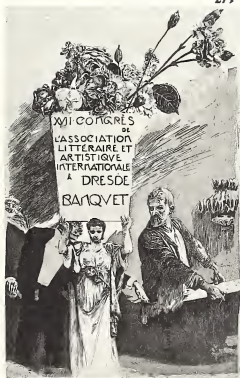 XVII · CONGRÈS
DE
L'ASSOCIATION
LITTÉRAIRE ET
ARTISTIQUE
INTERNATIONALE
A DRESDE
BANQVET